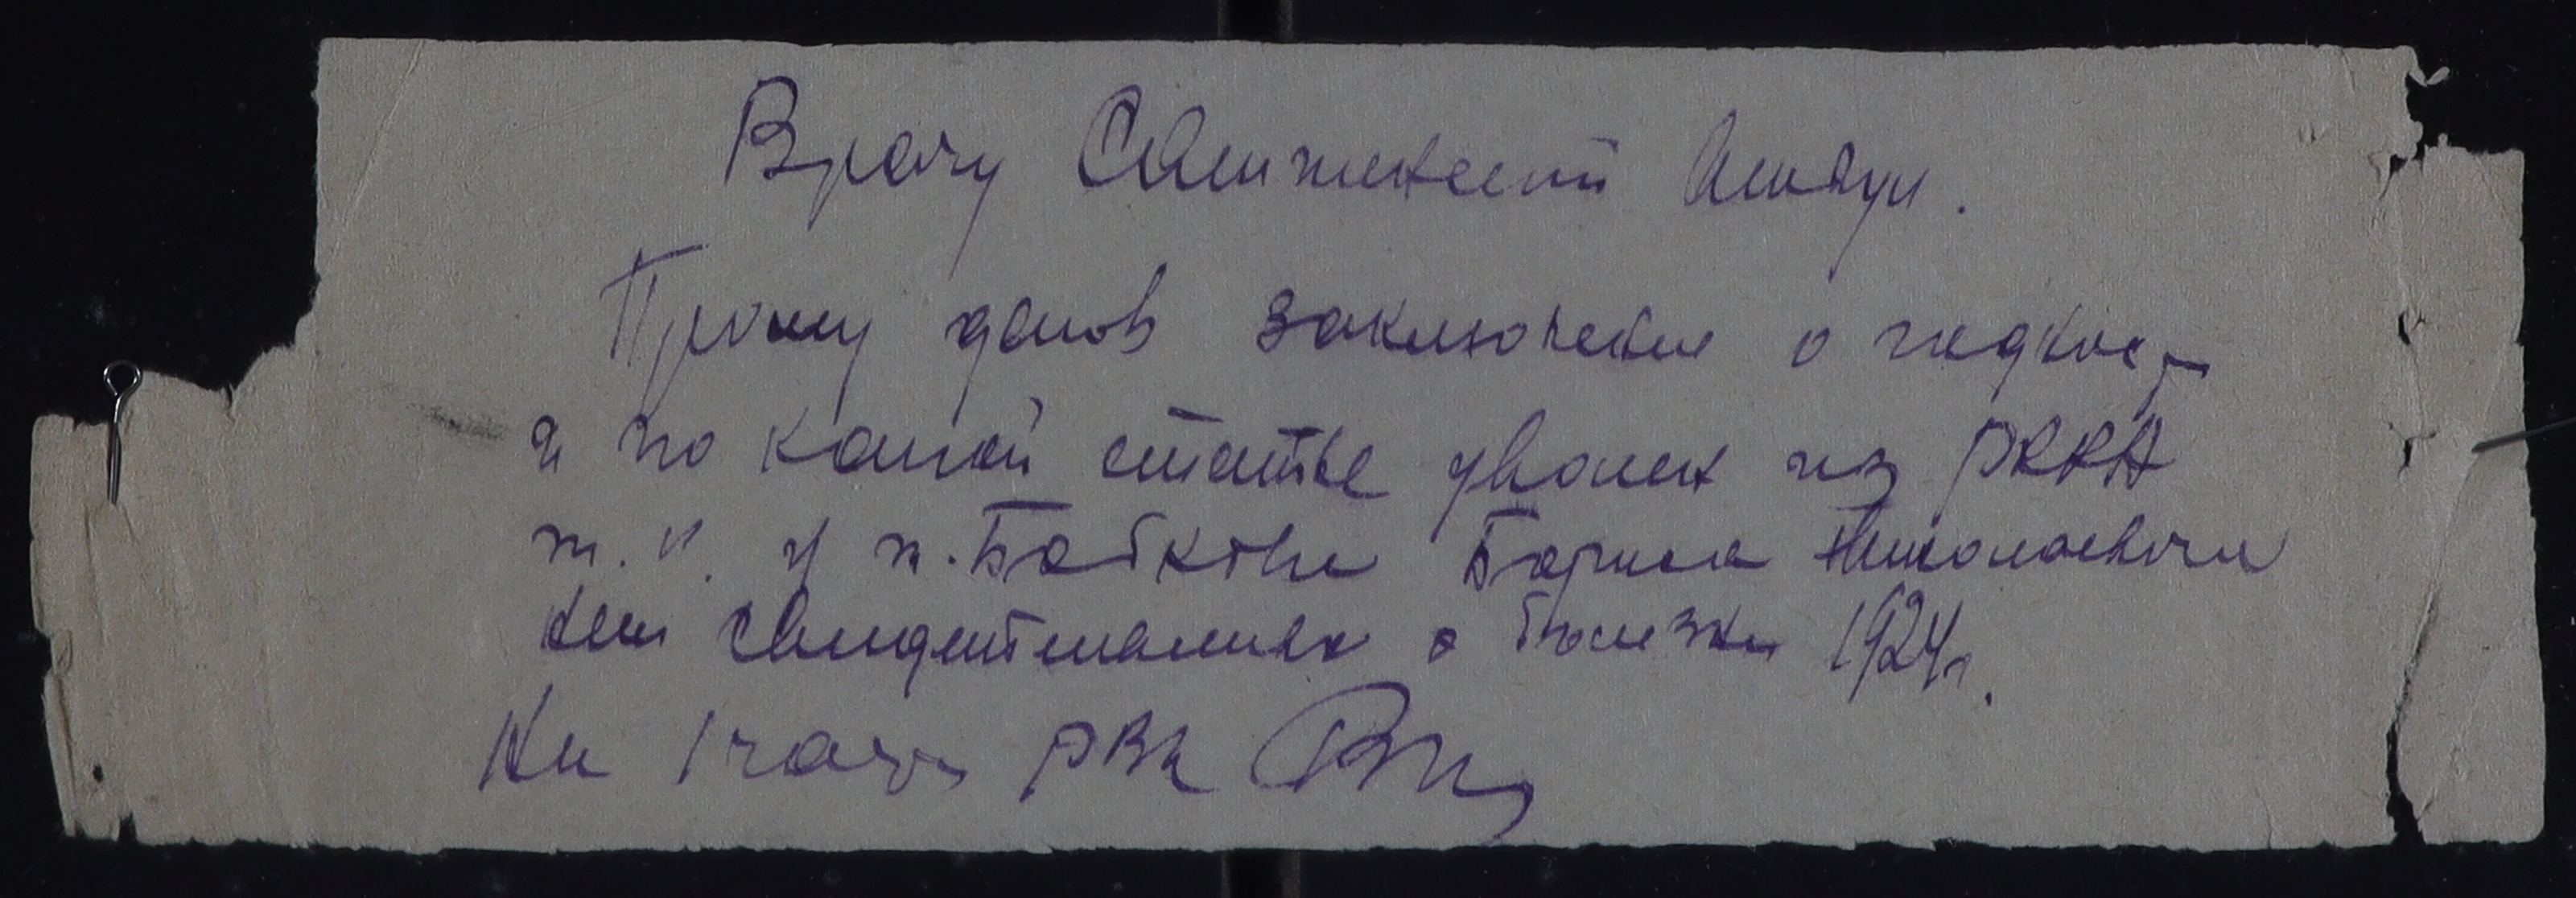 Врачу Амбул.
Прошу дать заключение о годност
и по какой статье уволен из РККА
т.к. у т. Бобкова Бориса Николаевича
нет свидетельства о болезни 1924г.
Нач 1 части РВК